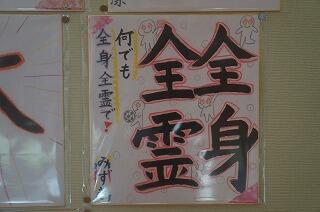 全身
全霊
何でも
全身全霊で!
みずき